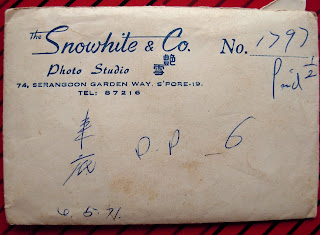 The Snowhite & Co. No. 1797
Photo Studio 艷雪 Paid 1/2
74, SERANGOON GARDEN WAY, S'PORE-19.
TEL: 87216
車底 P.P 6
6.5.71.